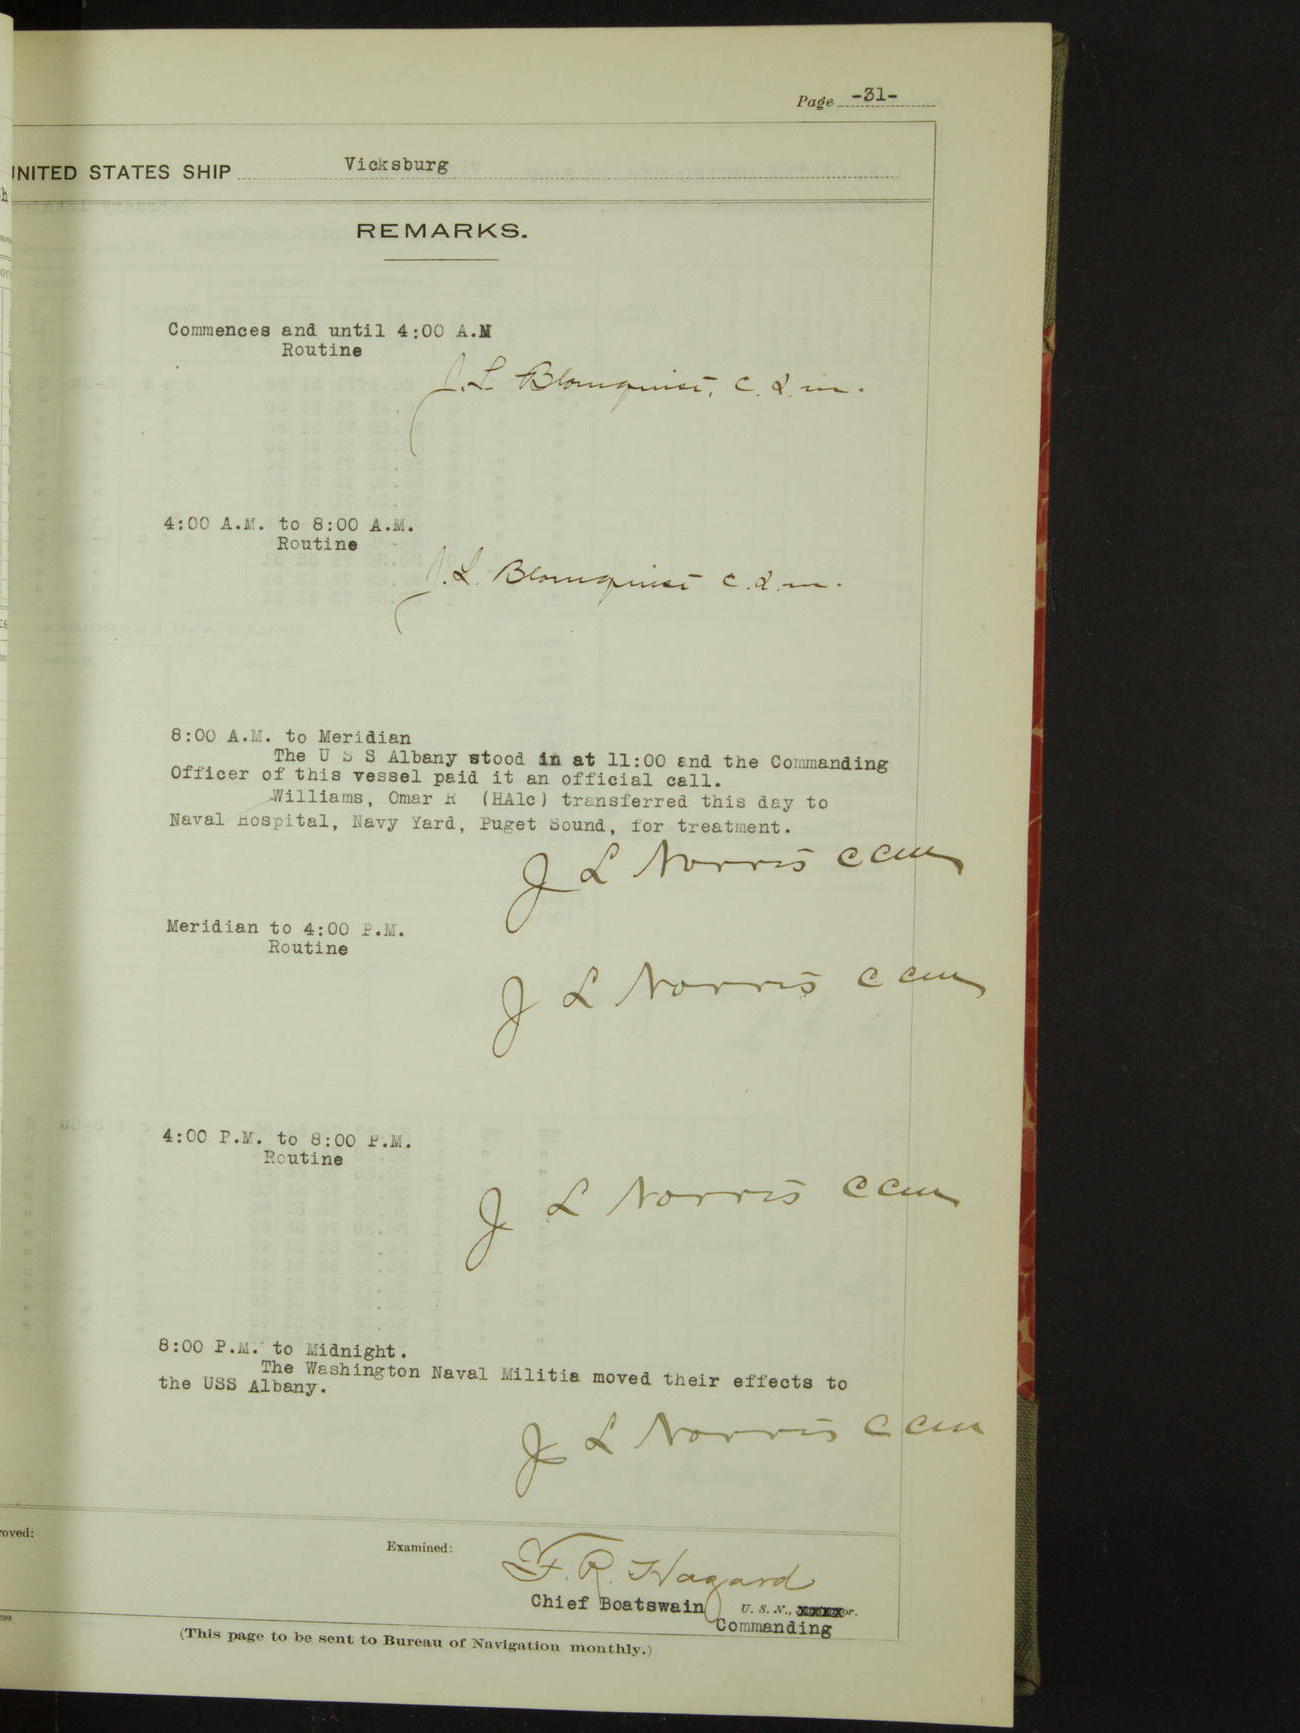 Page -31-
UNITED STATES SHIP Vicksburg
REMARKS.
Commences and until 4:00 A.M
Routine
J.L. Blomquist, C.G.M.
4:00 A.M. to 8:00 A.M.
Routine
J.L. Blomquist C.G.M.
8:00 A.M. to Meridian
The U S S Albany stood in at 11:00 and the Commanding
Officer of this vessel paid it an official call.
Williams, Omar R (HA1c) transferred this day to
Naval Hospital, Navy Yard, Puget Sound, for treatment.
J L Norris CCM
Meridian to 4:00 P.M.
Routine
J L Norris CCM
4:00 P.M. to 8:00 P.M.
Routine
J L Norris CCM
8:00 P.M. to Midnight.
The Washington Naval Militia moved their effects to
the USS Albany.
J L Norris CCM
roved:
Examined:
F. R. Hazard
Chief Boatswain U. S. N.,
Commanding
(This page to be sent to Bureau of Navigation monthly.)